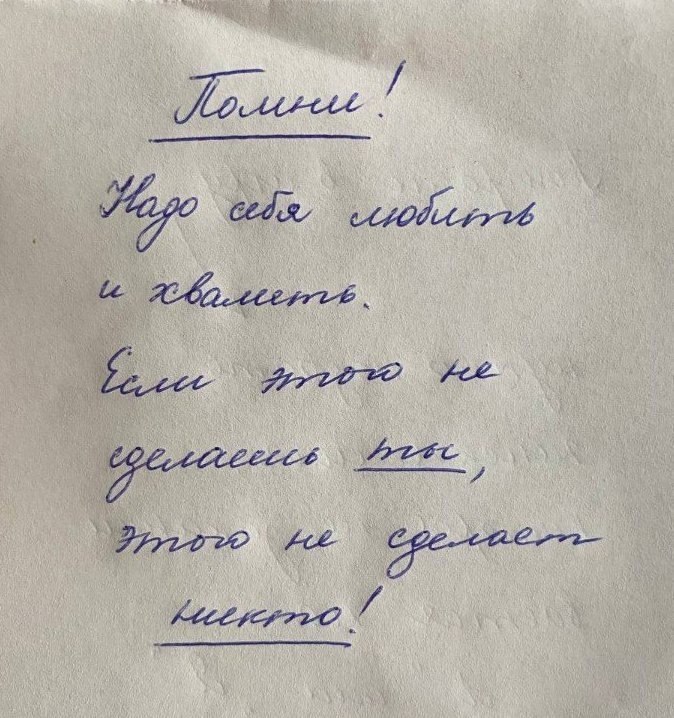 Помни!
Надо себя любить
и хвалить.
Если этого не
сделаешь ты,
этого не сделает
никто!